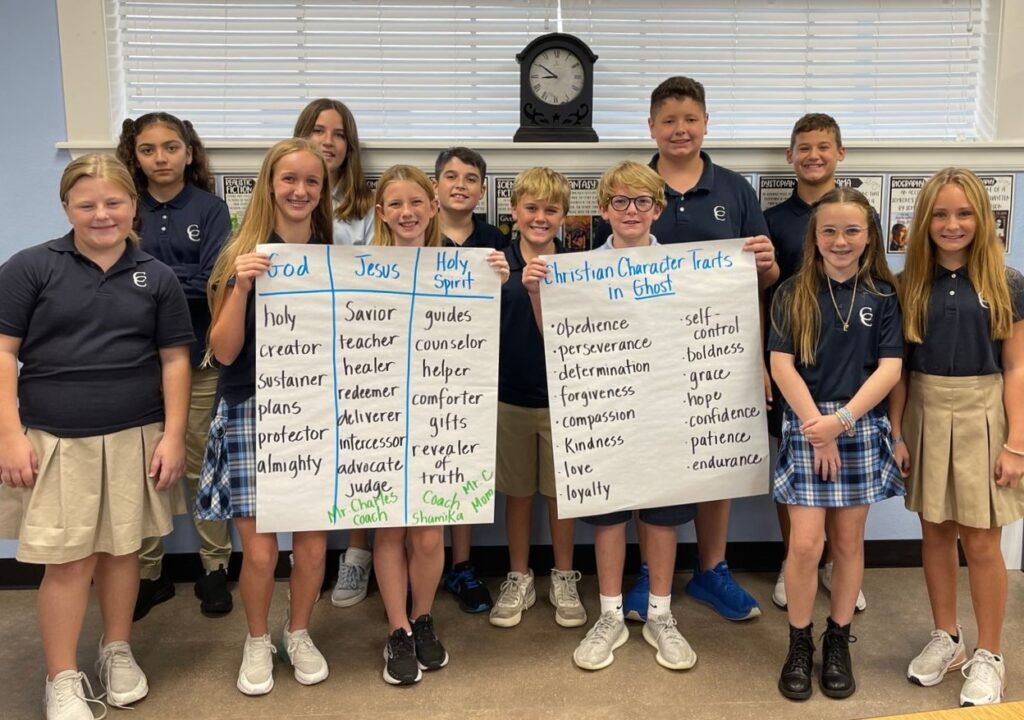 God
holy
creator
sustainer
plans
protector
almighty
Jesus
Savior
teacher
healer
redeemer
deliverer
intercessor
advocate
judge
Mr. Charles
Coach
Holy
Spirit
guides
counselor
helper
comforter
gifts
revealer
of
truth
Coach
Shamika
Mr. C
Mom
Christian Character Traits
in Ghost
• obedience
• perseverance
• determination
• forgiveness
• compassion
• Kindness
• love
• loyalty
• self-
control
• boldness
• grace
• hope
• confidence
• patience
• endurance
REALISTIC
FICTION
FANTASY
DYSTOPIAN
BIOGRAPHY